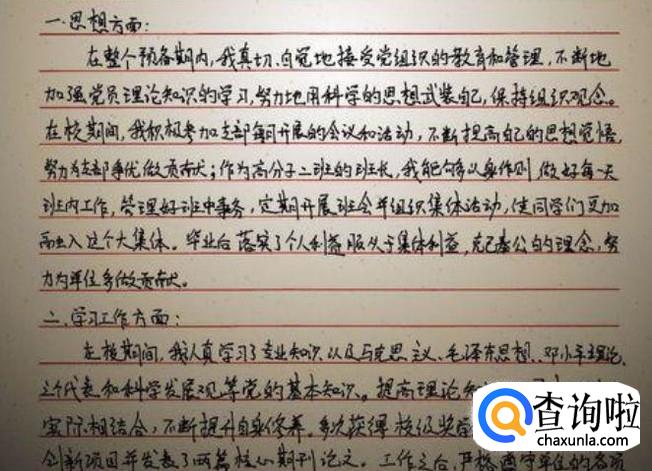 一.思想方面:
在整个预备期内,我真切、自觉地接受党组织的教育和管理,不断地
加强党员理论知识的学习,努力地用科学的思想武装自己,保持组织观念。
在校期间,我积极参加支部每月开展的会议和活动,不断提高自己的思想觉悟,
努力为支部争优做贡献;作为高分子二班的班长,我能够以身作则,做好每一天
班内工作,管理好班中事务,定期开展班会并组织集体活动,使同学们更加
融入这个大集体。毕业后落实了个人利益服从于集体利益,克己奉公的理念,努
力为单位多做贡献。
二.学习工作方面:
在校期间,我认真学习了专业知识以及马克思主义、毛泽东思想、邓小平理论、
三个代表和科学发展观等党的基本知识。提高理论知
实际相结合,不断提升自身修养。多次获得校级奖学
创新项目并发表了两篇核心期刊论文。工作之后,严格遵守单位的各项
查询啦
chaxunla.com